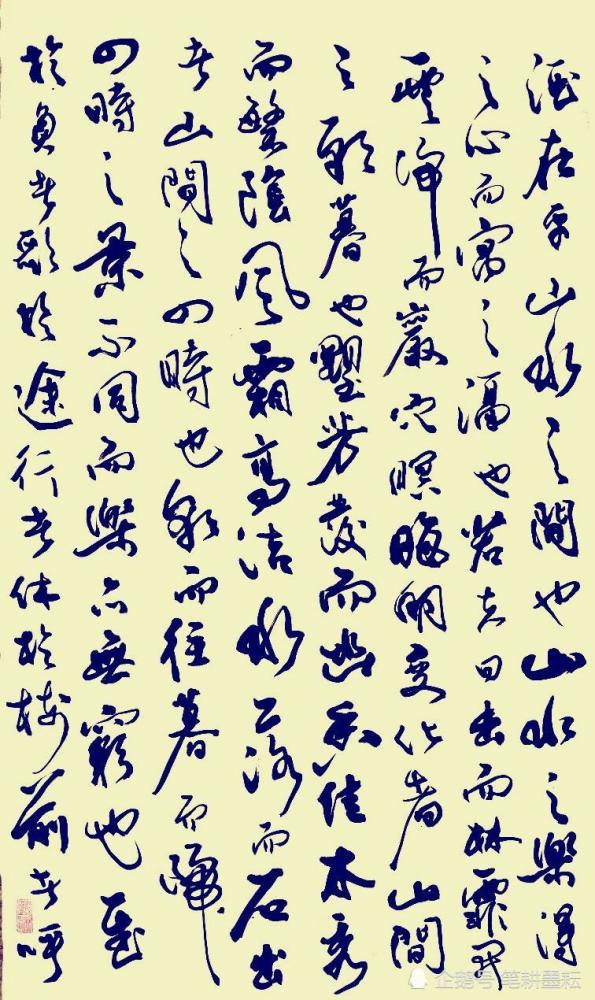 酒在乎山水之間也山水之樂得
之心而寓之酒也若夫日出而林霏開
雲歸而巖穴暝晦明變化者山間
之朝暮也野芳發而幽香佳木秀
而繁陰風霜高洁水落而石出
者山間之四時也朝而往暮而歸
四時之景不同而樂亦無窮也至
於負者歌於途行者休於樹前者呼
企鹅号 笔耕墨耘